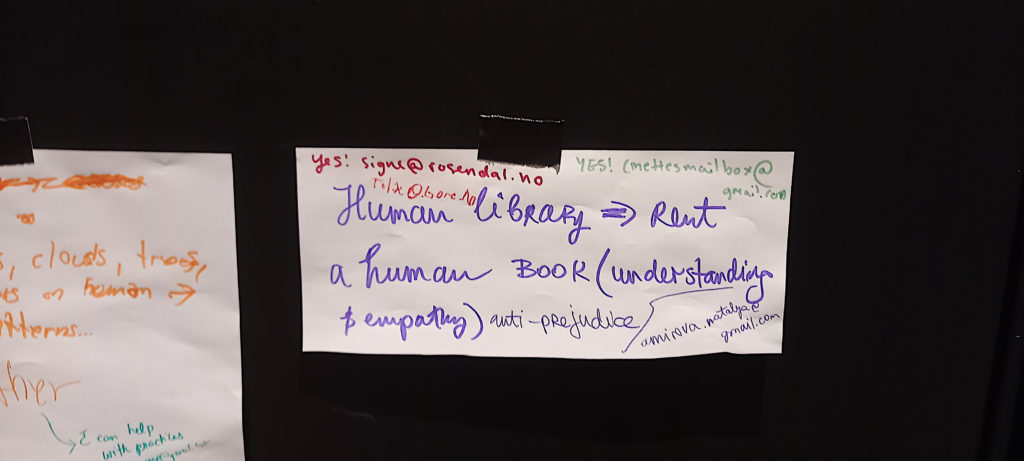 clouds, trees,
on human →
her
I can help
with practices
yes! signe@rosendal.no
YES! (mettesmailbox@
gmail.com
Human library ⇒ Rent
a human BOOK (understanding
& empathy) anti-prejudice
amirova.natalya@
gmail.com